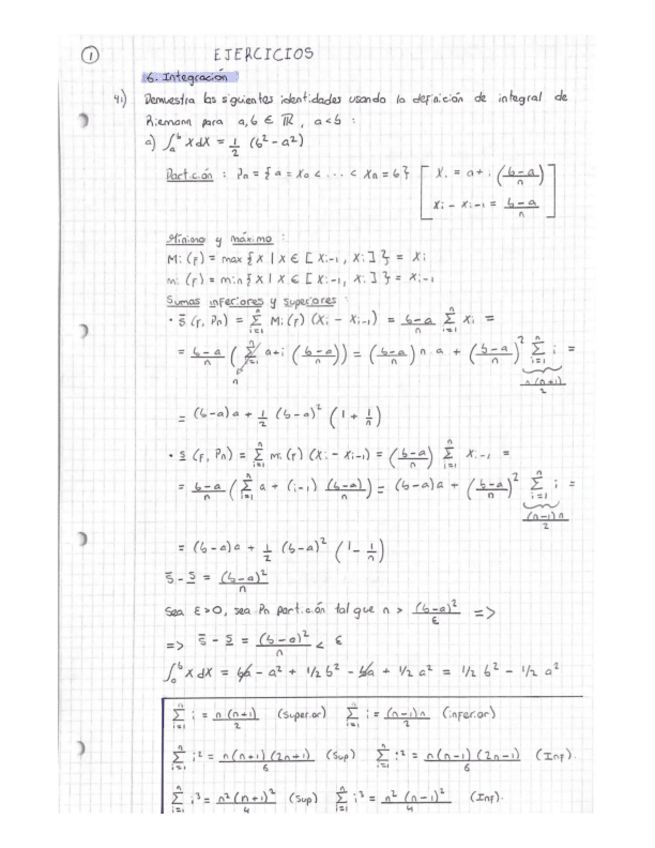 1 EJERCICIOS
6. Integración
41) Demuestra las siguientes identidades usando la definición de integral de
Riemann para a, b ∈ ℝ, a < b :
a) ∫_a^b x dx = 1/2 (b² - a²)
Partición : Pn = {a = x₀ < ... < xn = b} [ xᵢ = a + i ((b-a)/n)
xᵢ - xᵢ₋₁ = (b-a)/n ]
Mínimo y máximo :
Mᵢ (f) = max {x | x ∈ [xᵢ₋₁, xᵢ]} = xᵢ
mᵢ (f) = min {x | x ∈ [xᵢ₋₁, xᵢ]} = xᵢ₋₁
Sumas inferiores y superiores :
• S̄ (f, Pn) = Σ_{i=1}^n Mᵢ (f) (xᵢ - xᵢ₋₁) = (b-a)/n Σ_{i=1}^n xᵢ =
= (b-a)/n ( Σ_{i=1}^n a + i ((b-a)/n)) = ((b-a)/n) n a + ((b-a)/n)² Σ_{i=1}^n i =
n n(n+1)/2
= (b-a) a + 1/2 (b-a)² (1 + 1/n)
• s̲ (f, Pn) = Σ_{i=1}^n mᵢ (f) (xᵢ - xᵢ₋₁) = ((b-a)/n) Σ_{i=1}^n xᵢ₋₁ =
= (b-a)/n ( Σ_{i=1}^n a + (i-1) (b-a)/n ) = (b-a) a + ((b-a)/n)² Σ_{i=1}^n i =
(n-1)n/2
= (b-a) a + 1/2 (b-a)² (1 - 1/n)
S̄ - s̲ = (b-a)²/n
Sea ε > 0, sea Pn partición tal que n > (b-a)²/ε =>
=> S̄ - s̲ = (b-a)²/n < ε
∫_a^b x dx = ba - a² + 1/2 b² - ba + 1/2 a² = 1/2 b² - 1/2 a²
Σ_{i=1}^n i = n(n+1)/2 (Superior) Σ_{i=1}^n i = (n-1)n/2 (inferior)
Σ_{i=1}^n i² = n(n+1)(2n+1)/6 (Sup) Σ_{i=1}^n i² = n(n-1)(2n-1)/6 (Inf).
Σ_{i=1}^n i³ = n²(n+1)²/4 (Sup) Σ_{i=1}^n i³ = n²(n-1)²/4 (Inf).